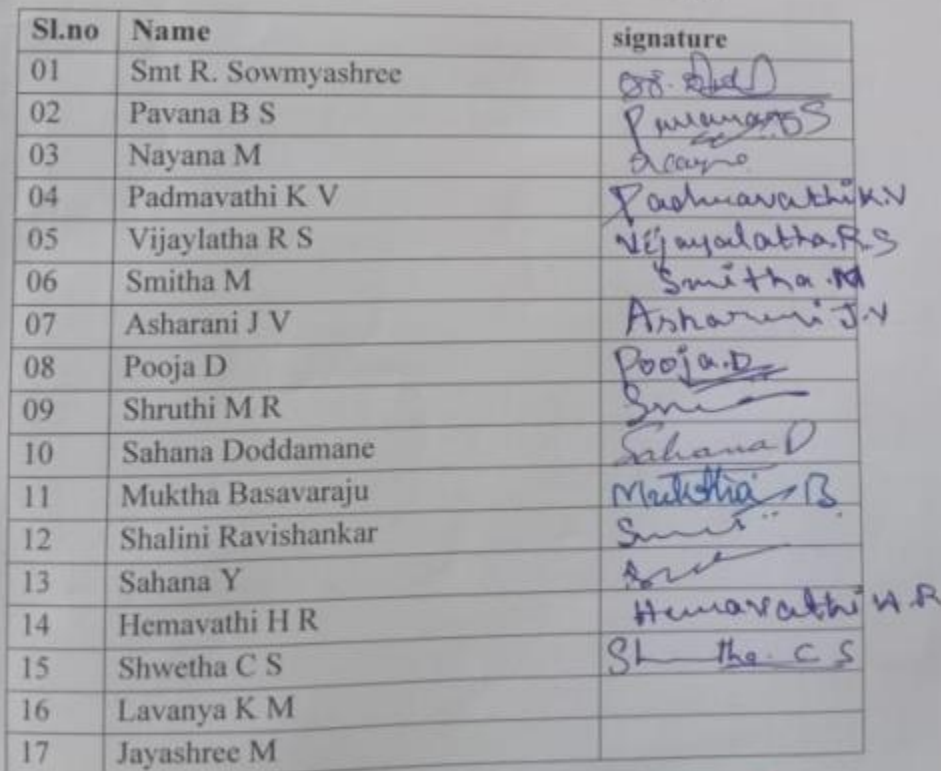 Sl.no Name signature
01 Smt R. Sowmyashree
02 Pavana B S
03 Nayana M
04 Padmavathi K V Padmavathi K.V
05 Vijaylatha R S Vijayalatha.R.S
06 Smitha M Smitha.M
07 Asharani J V Asharani J.V
08 Pooja D Pooja.D
09 Shruthi M R
10 Sahana Doddamane Sahana D
11 Muktha Basavaraju Muktha B
12 Shalini Ravishankar
13 Sahana Y
14 Hemavathi H R Hemavathi H.R
15 Shwetha C S C S
16 Lavanya K M
17 Jayashree M